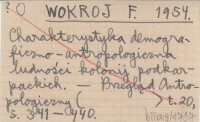 ? O WOKROJ F. 1954.
Charakterystyka demogra-
ficzno-antropologiczna
ludności kolonij podkar-
packich. - Przegląd Antro-
pologiczny ( t. 20,
s. 341-440.